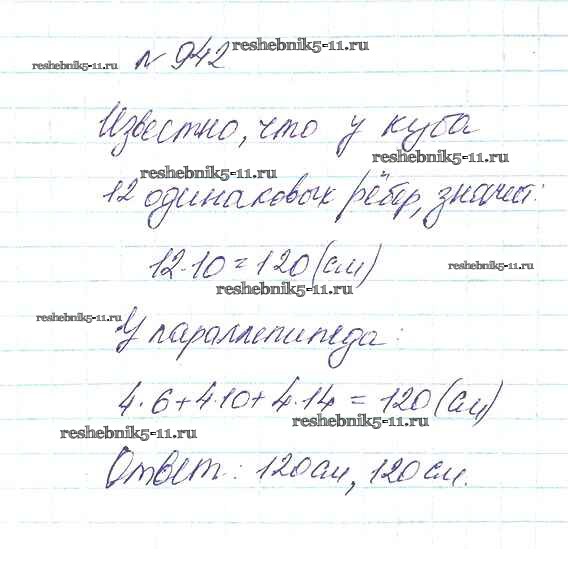 № 942 reshebnik5-11.ru
reshebnik5-11.ru
Известно, что у куба
reshebnik5-11.ru
reshebnik5-11.ru
12 одинаковых рёбер, значит:
12·10=120(см)
reshebnik5-11.ru
reshebnik5-11.ru
reshebnik5-11.ru
У параллепипеда:
4·6+4·10+4·14=120(см)
reshebnik5-11.ru
reshebnik5-11.ru
Ответ: 120см, 120см.